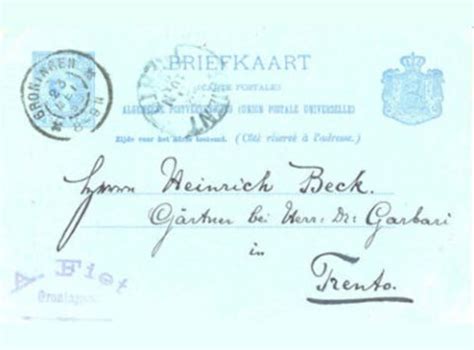 BRIEFKAART
(CARTE POSTALE)
ALGEMEENE POSTVEREENIGING (UNION POSTALE UNIVERSELLE)
Zijde voor het adres bestemd. (Côté réservé à l'adresse.)
GRONINGEN
23
Herrn Heinrich Beck.
Gärtner bei Herr: Dr: Garbari
in
Trento.
A. Fiet
Groningen